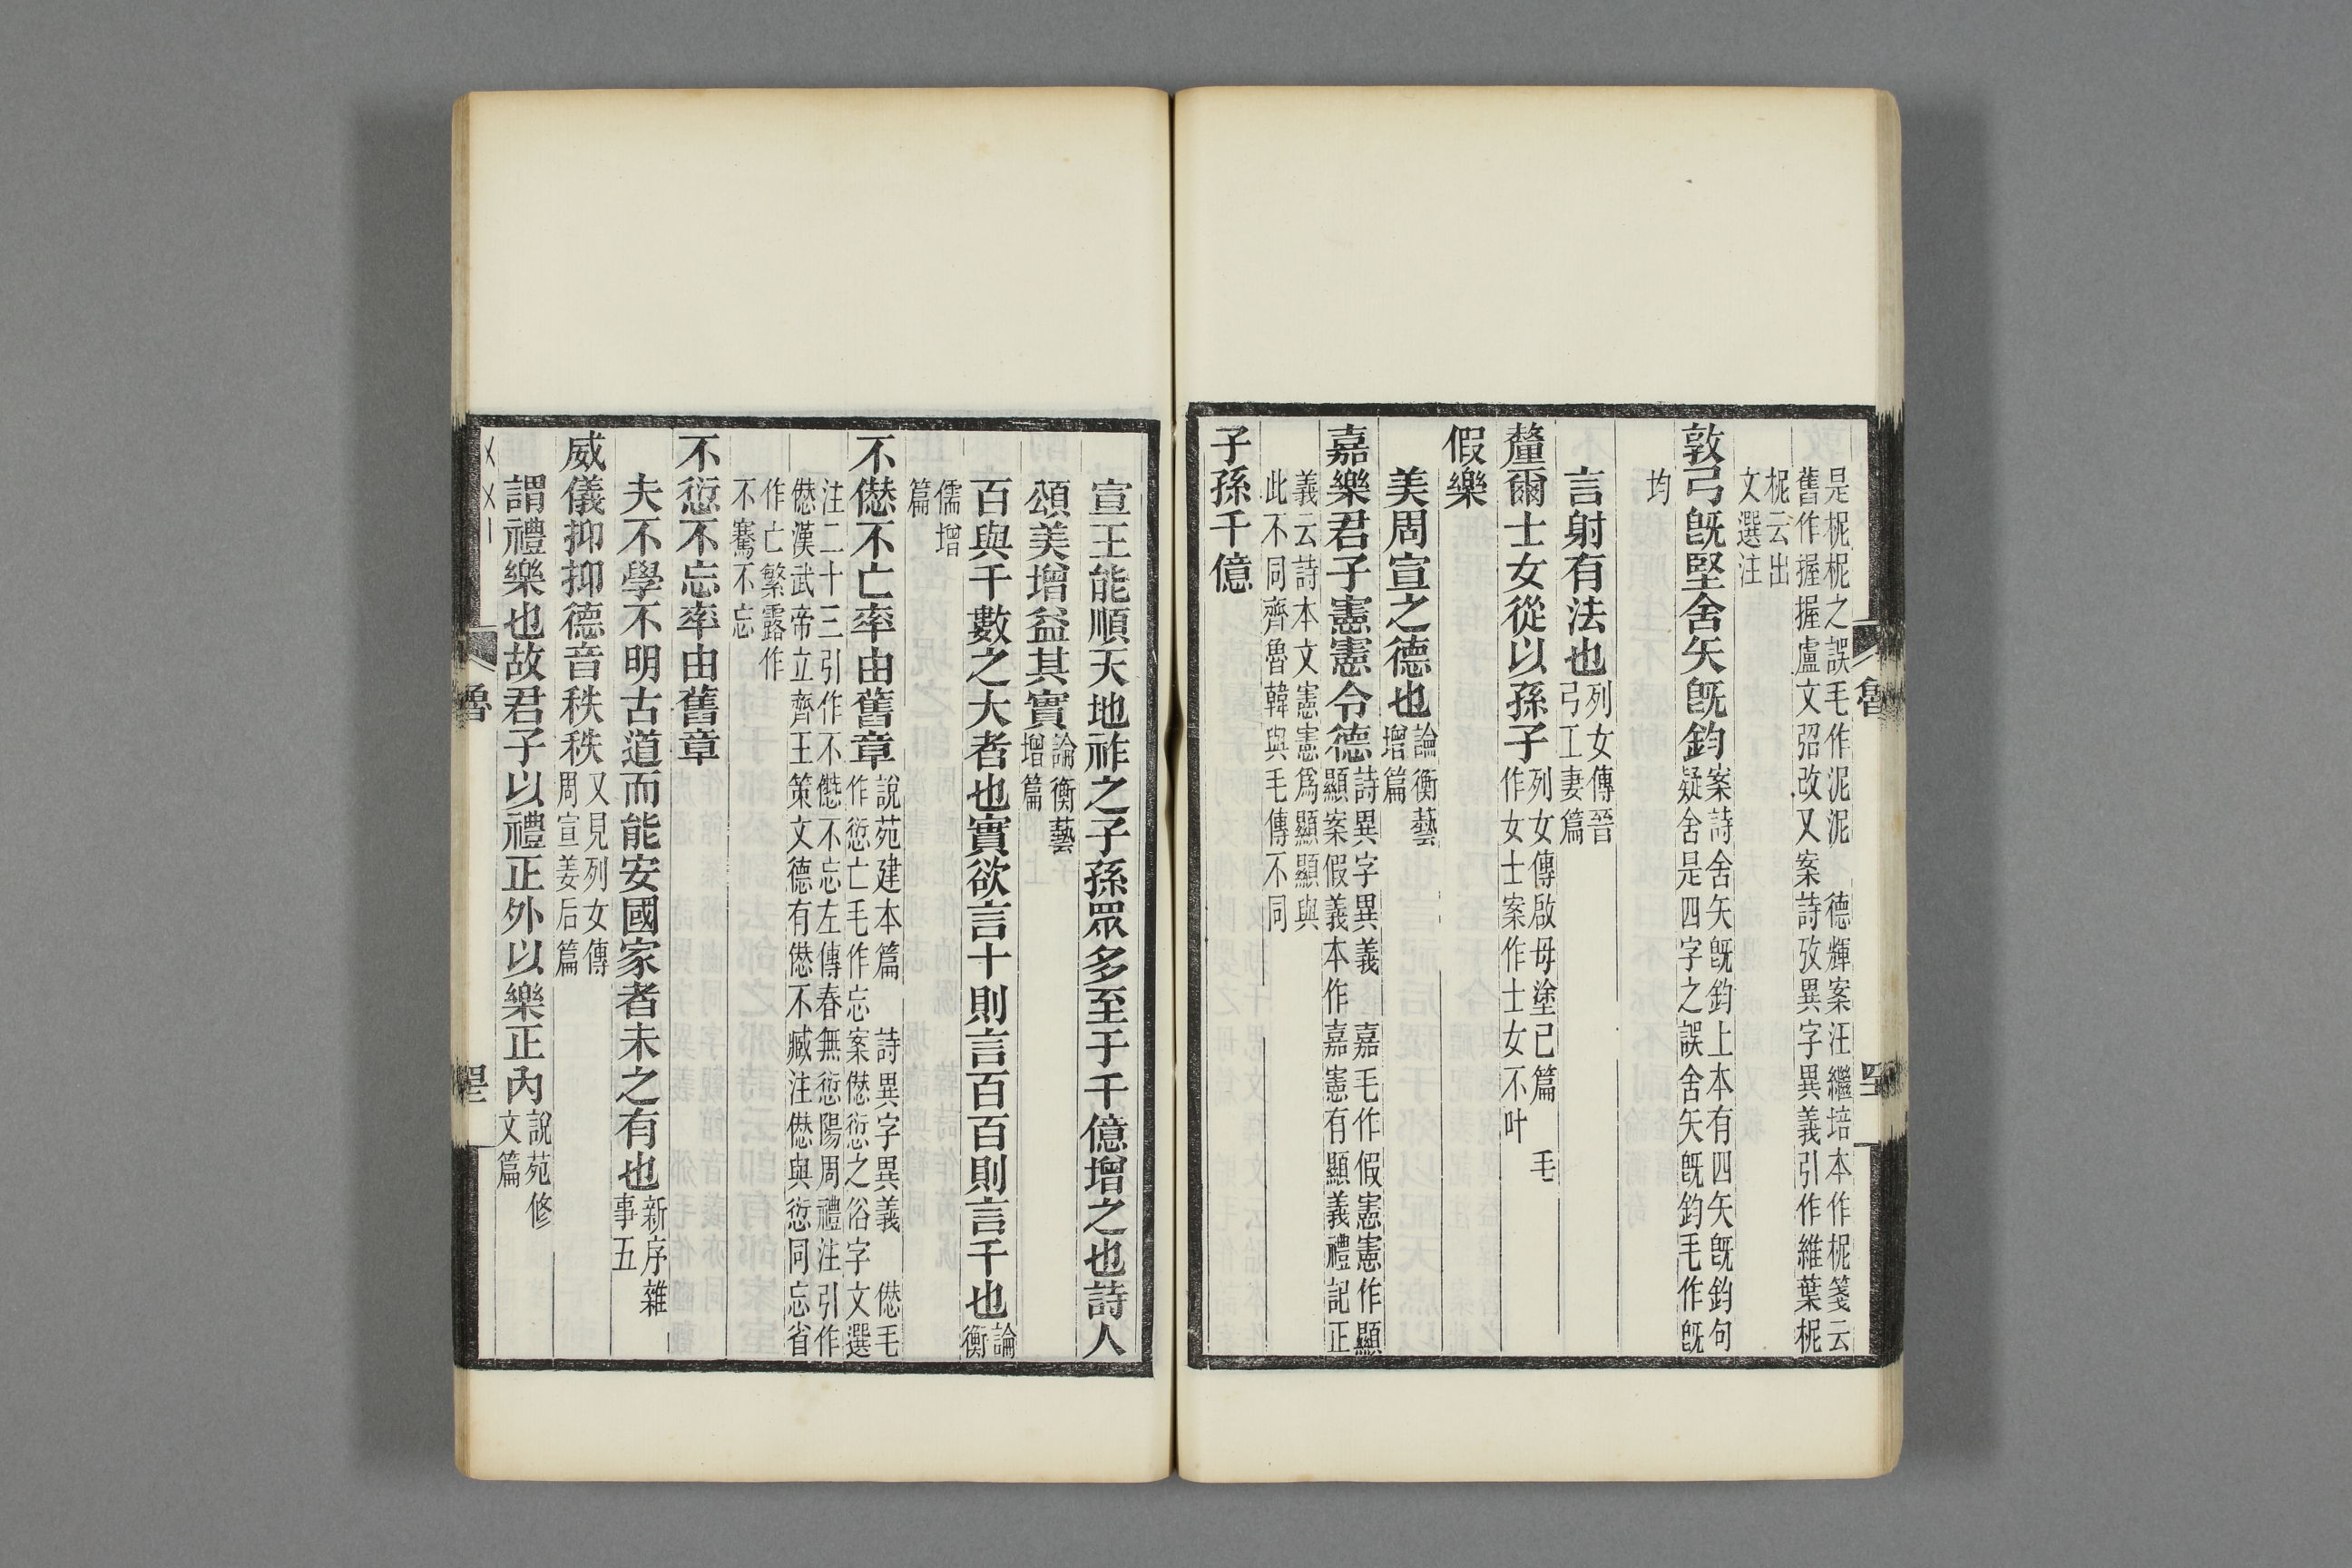 是柅柅之誤毛作泥泥　德輝案汪繼培本作柅箋云
舊作握握盧文弨改又案詩攷異字異義引作維葉柅
柅云出
文選注
敦弓旣堅舍矢旣鈞案詩舍矢旣鈞上本有四矢旣鈞句
疑舍是四字之誤舍矢旣鈞毛作旣
均
言射有法也列女傳晉
弓工妻篇
釐爾士女從以孫子列女傳啟母塗已篇　毛
作女士案作士女不叶
假樂
美周宣之德也論衡藝
增篇
嘉樂君子憲憲令德詩異字異義　嘉毛作假憲憲作顯
顯案假義本作嘉憲有顯義禮記正
義云詩本文憲憲爲顯顯與
此不同齊魯韓與毛傳不同
子孫千億
魯
宣王能順天地祚之子孫眾多至于千億增之也詩人
頌美增益其實論衡藝
增篇
百與千數之大者也實欲言十則言百百則言千也論
衡
儒增
篇
不僁不亡率由舊章說苑建本篇　詩異字異義　僁毛
作愆亡毛作忘案僁愆之俗字文選
注二十三引作不僁不忘左傳春無愆陽周禮注引作
僁漢武帝立齊王策文德有僁不臧注僁與愆同忘省
作亡繁露作
不騫不忘
不愆不忘率由舊章
夫不學不明古道而能安國家者未之有也新序雜
事五
威儀抑抑德音秩秩又見列女傳
周宣姜后篇
謂禮樂也故君子以禮正外以樂正內說苑修
文篇
魯